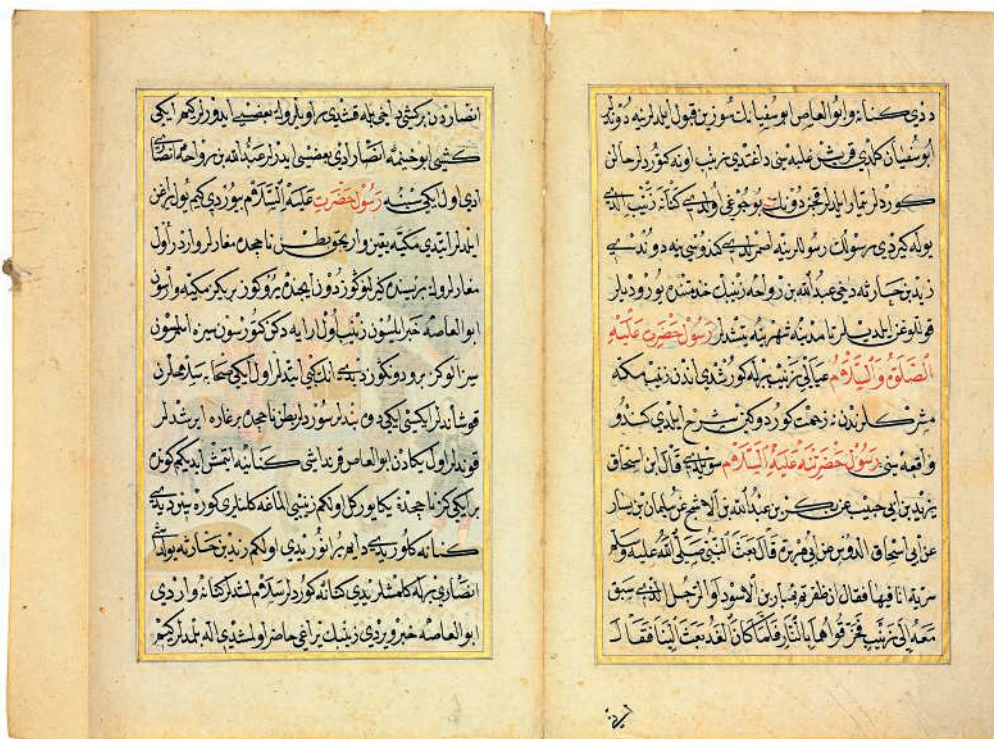 ددي كنانه وابوالعاص ابوسفيانك سوزين قبول ايلديلر ينه دوندلر
ابوسفيان كلدي قريش غلبه سني داغتدي زينب اونه كوردلر حالن
كوردلر تمار ايلدلر قجن دونك بوجوغي اولدي كنانه زينب الدي
يوله كيردي رسولك رسوللرينه اصمرلدي كندوسي ينه دوندي
زيد بن حارثه دخي عبدالله بن رواحه زينبك خدمتنده يوروديلر
قوللوغن ايلديلر تا مدينه شهرينه يتشدلر رسول حضرت عليه
الصلوة والسلام عيالي زينب برله كورشدي اندن زينب مكه
مشركلرندن نه زحمت كوردوكين شرح ايلدي كندو
واقعه سني رسول حضرتنه عليه السلام سويلدي قال ابن اسحاق
يزيد بن ابي حبيب عن بكير بن عبدالله بن الاشج عن سليمان بن يسار
عن ابي اسحاق الدوسي عن ابي هريرة قال بعث النبي صلى الله عليه وسلم
سرية انا فيها فقال ان ظفرتم بهبار بن الاسود والرجل الذي سبق
معه الى زينب فحرقوهما بالنار فلما كان الغد بعث الينا فقال
انصاردن بر كشي داخي بله قشدي راويلر وار بعضي ايدورلر كيم ايكي
كشي ابو خيثمه انصاري بعضيسي ايدرلر عبدالله بن رواحه انصاري
ادي اول ايكيسينه رسول حضرت عليه السلام بيوردي كيم يول يراغن
ايلدلر ايتدي مكيه يقين واريجق بطن ناججده مغارلر واردر اول
مغارلرون بريسنده كيزلو كوز دون ايچنده يرو كوز بريكز مكيه وارسون
ابوالعاصه خبر ايلسون زينب اول ارايه دكن كتورسون سيزه اصمرلسون
سز الوكز برو دونكوز ديدي انك كبي ايتديلر اول ايكي صحابه سلاحلرن
قوشاندلر ايكيسي ايكي دوه بندلر سوردلر بطن ناججده بر غاره ايرشدلر
قوندلر اول يكادن ابوالعاص قرنداشي كنانيه ايتمش ايدي كيم كونده
بر ايكي كز ناججده يكا يور كل اولكم زينبي الماغه كلنلري كوره سين ديدي
كنانه كلوردي دايم يرانوريدي اولكم زيد بن حارثه يولداشي
انصاري برله كلمشلريدي كنانه كوردلر سلام لشدلر كنانه واردي
ابوالعاصه خبر ويردي زينبك يراغي حاضر اولمشدي اله بلدلر كيم